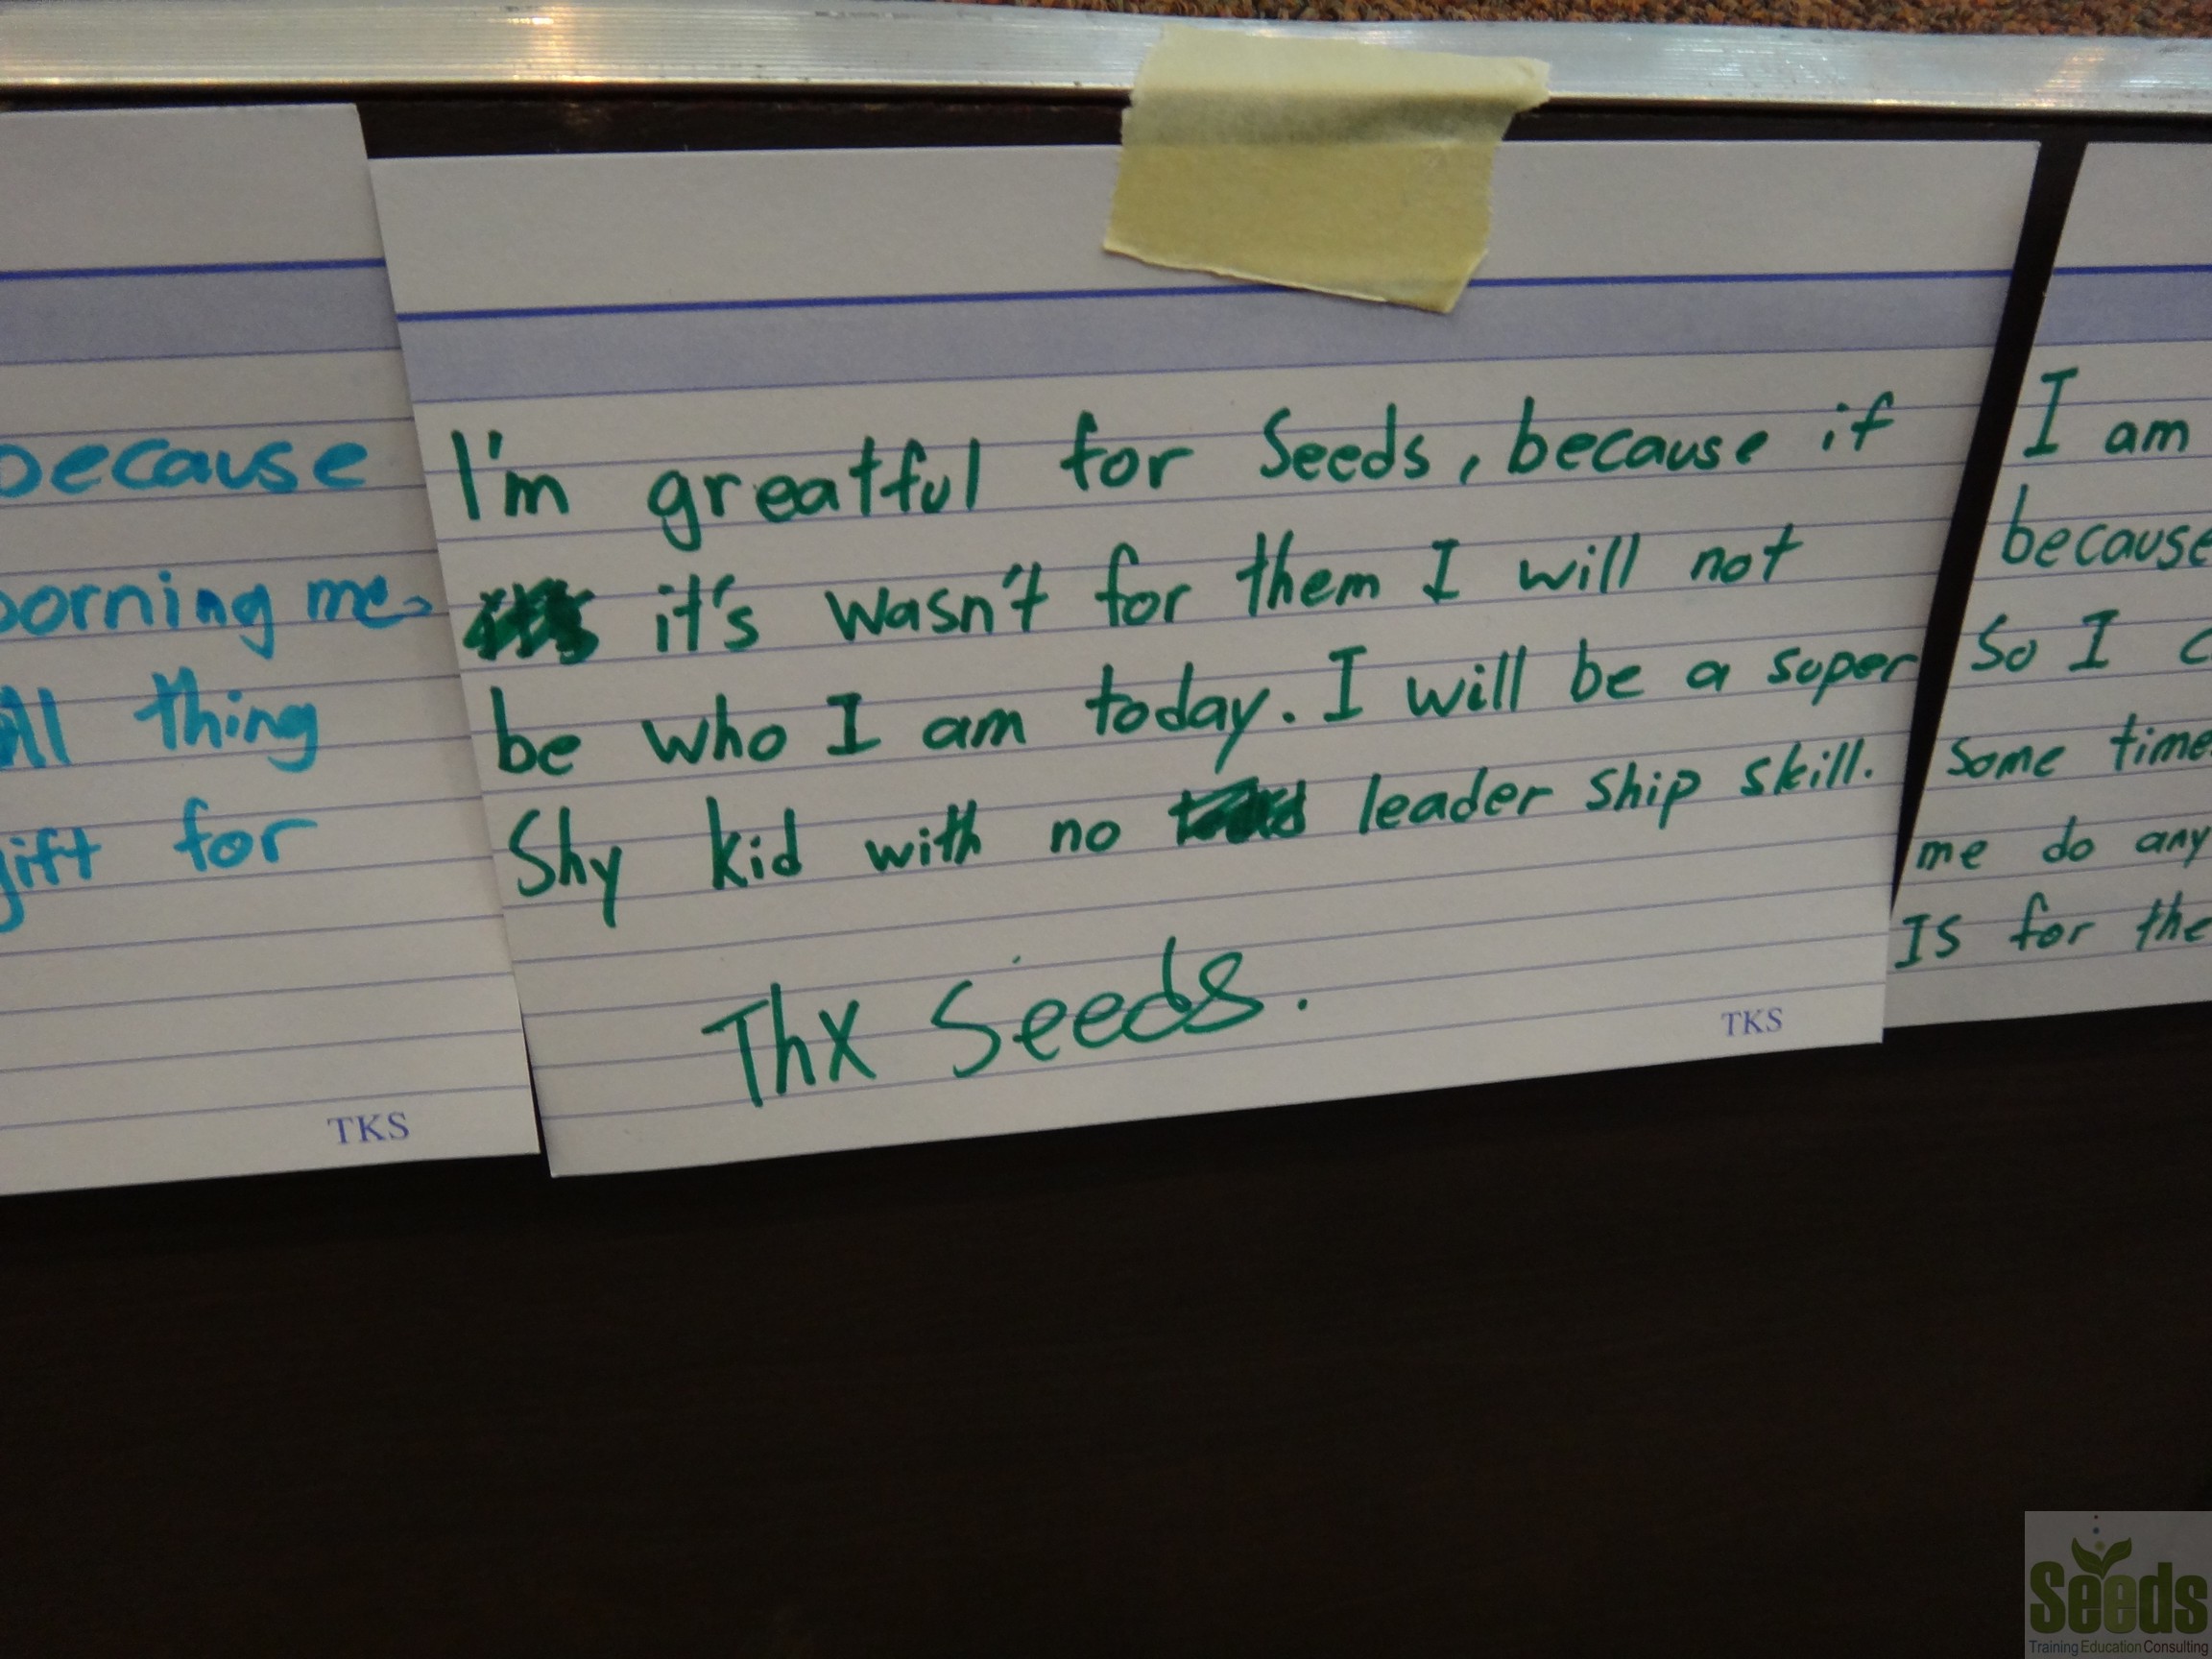 because
borning me
All thing
gift for
TKS
I'm greatful for Seeds, because if
it's wasn't for them I will not
be who I am today. I will be a super
Shy kid with no leader ship skill.
Thx Seeds.
TKS
I am
because
So I
Some time
me do any
Is for the
Seeds
Training Education Consulting